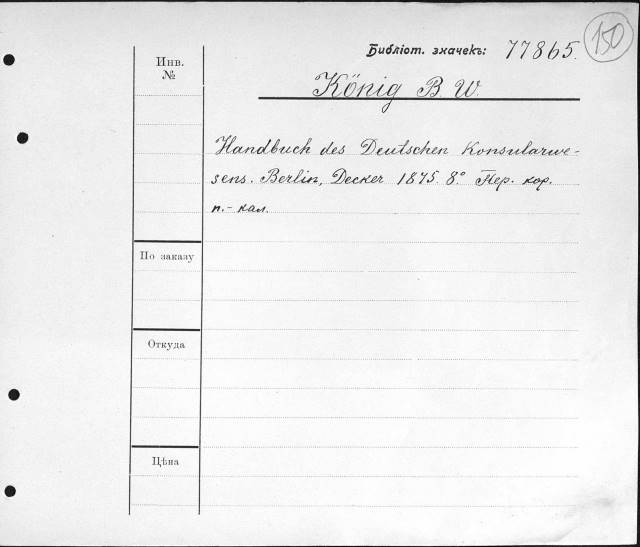 150
Библіот. значекъ: 77865.
Инв.
№
König B. W.
Handbuch des Deutschen Konsularwe-
sens. Berlin, Decker 1875. 8.° Пер. кор.
п.- кал.
По заказу
Откуда
Цѣна